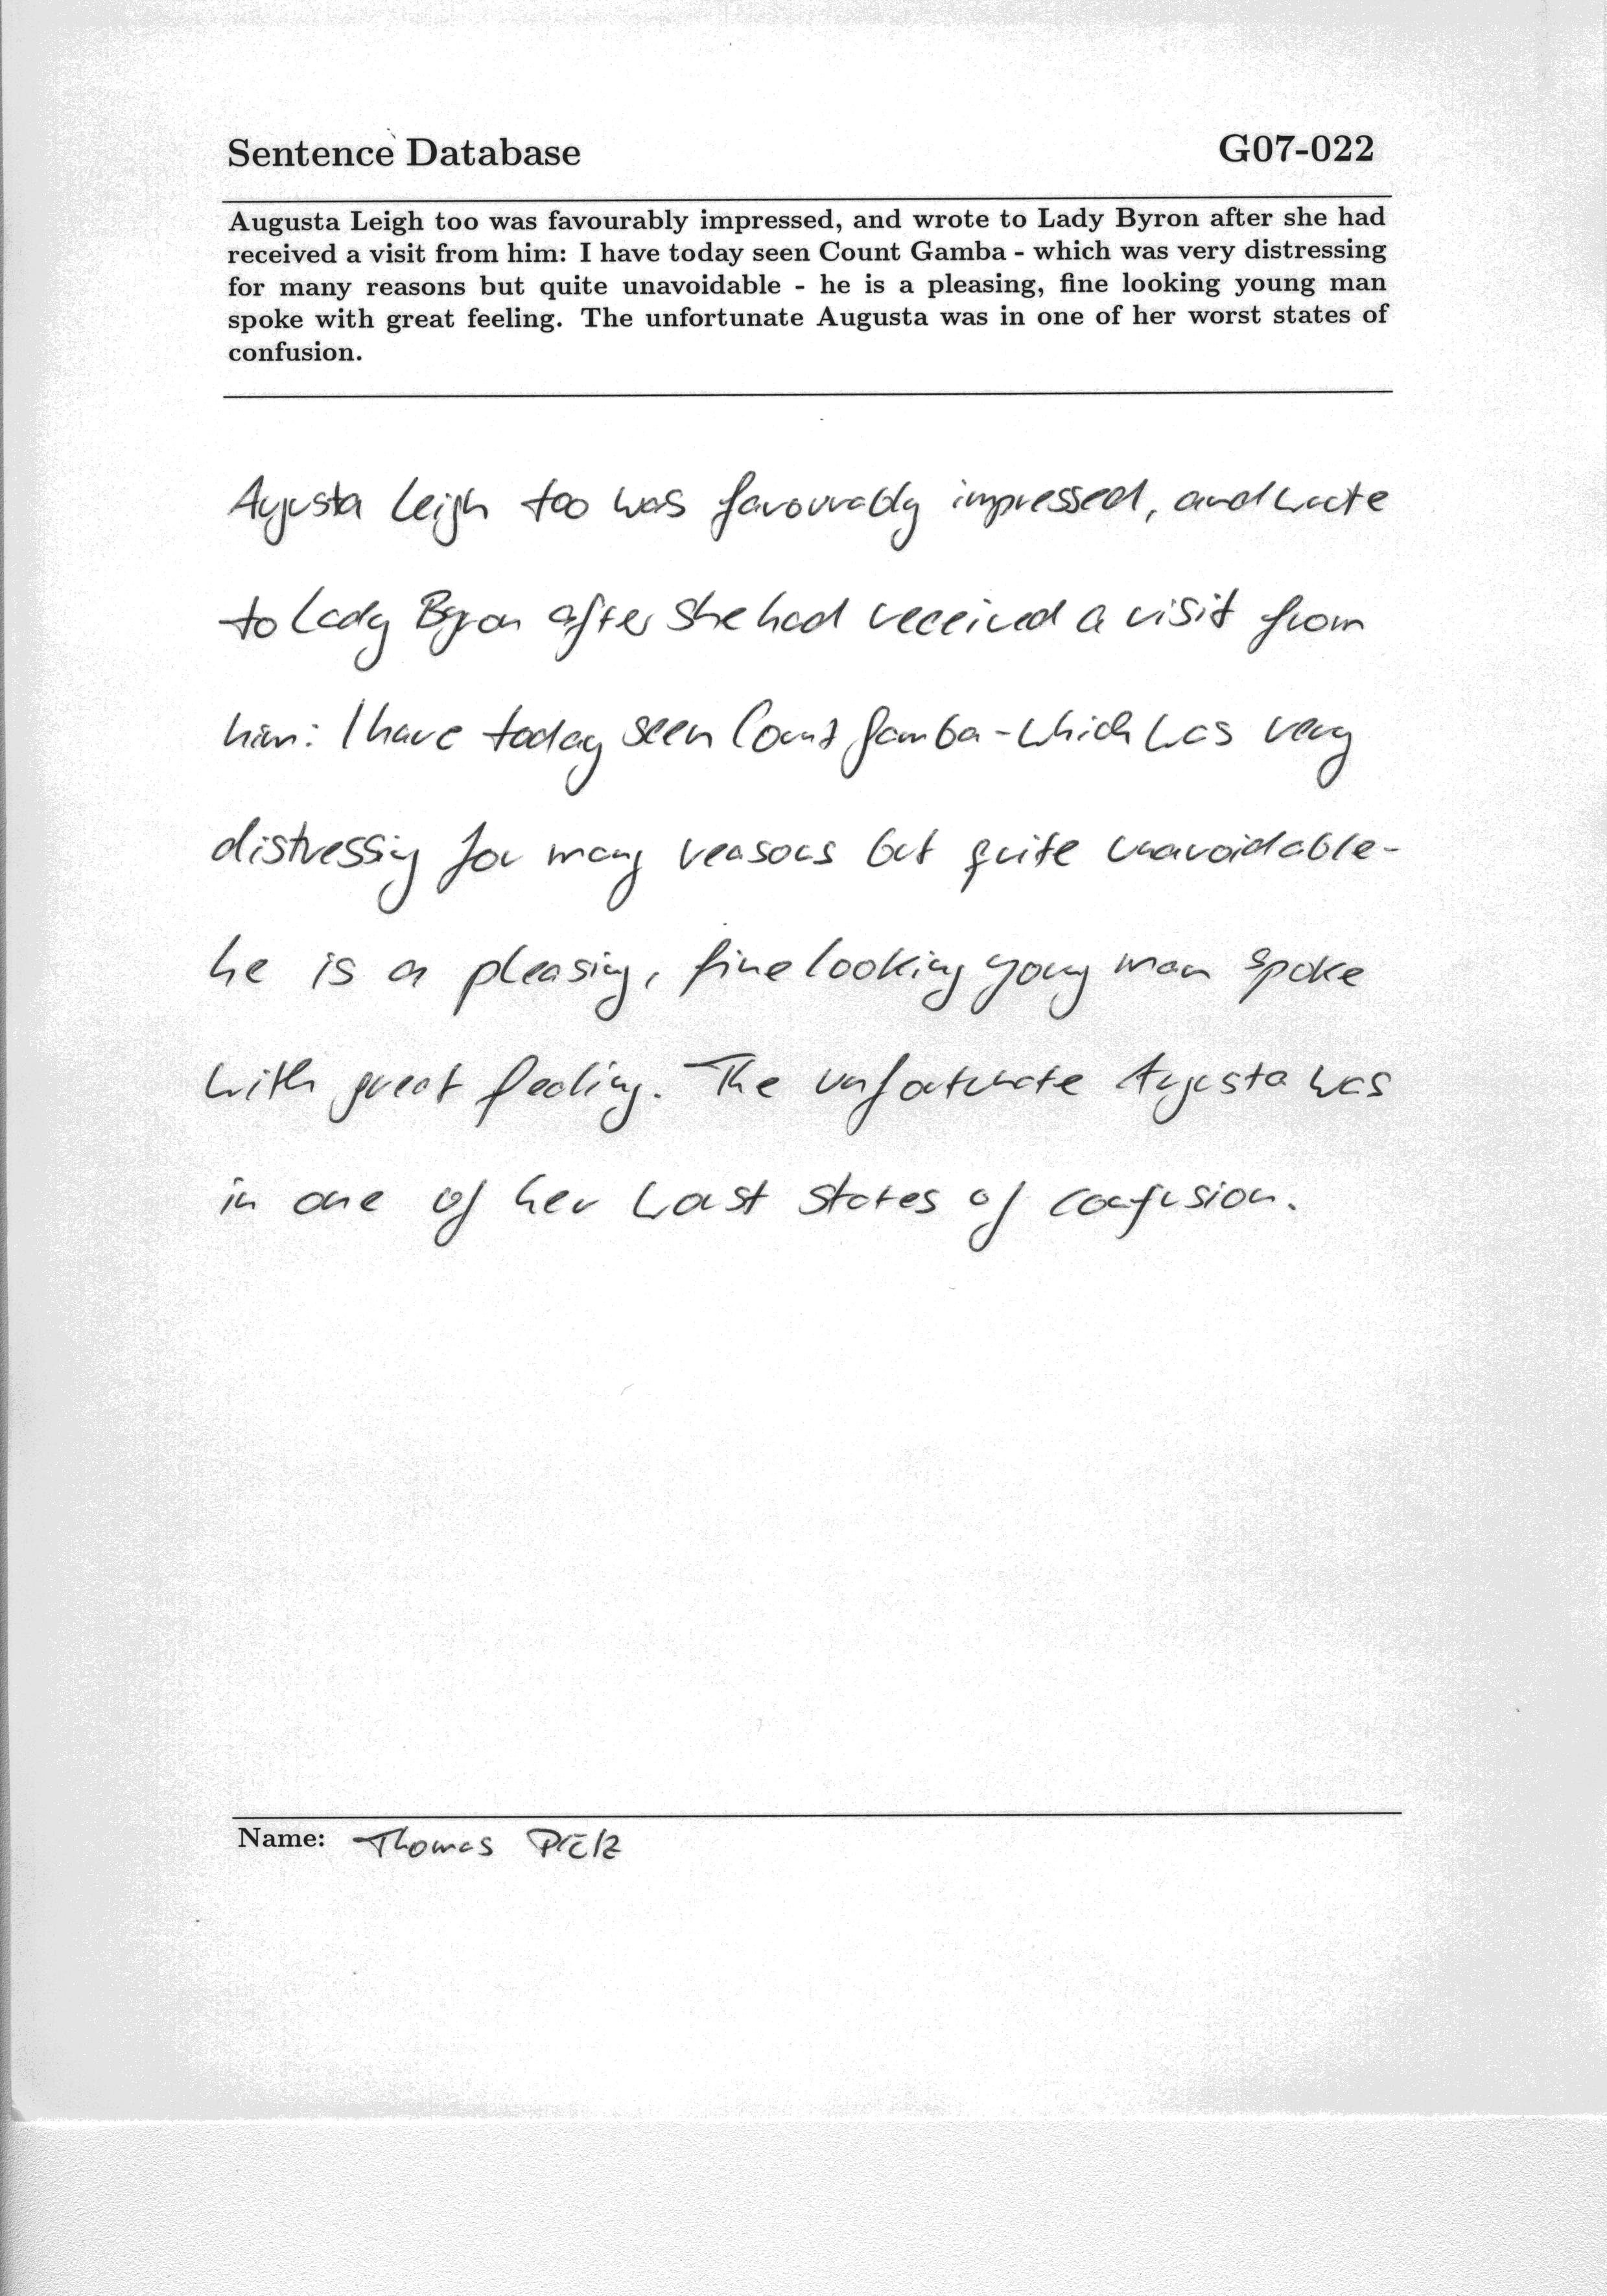 Sentence Database G07-022
Augusta Leigh too was favourably impressed, and wrote to Lady Byron after she had
received a visit from him: I have today seen Count Gamba - which was very distressing
for many reasons but quite unavoidable - he is a pleasing, fine looking young man
spoke with great feeling. The unfortunate Augusta was in one of her worst states of
confusion.
Augusta Leigh too was favourably impressed, and wrote
to Lady Byron after she had received a visit from
him: I have today seen Count Gamba - which was very
distressing for many reasons but quite unavoidable -
he is a pleasing, fine looking young man spoke
with great feeling. The unfortunate Augusta was
in one of her worst states of confusion.
Name: Thomas